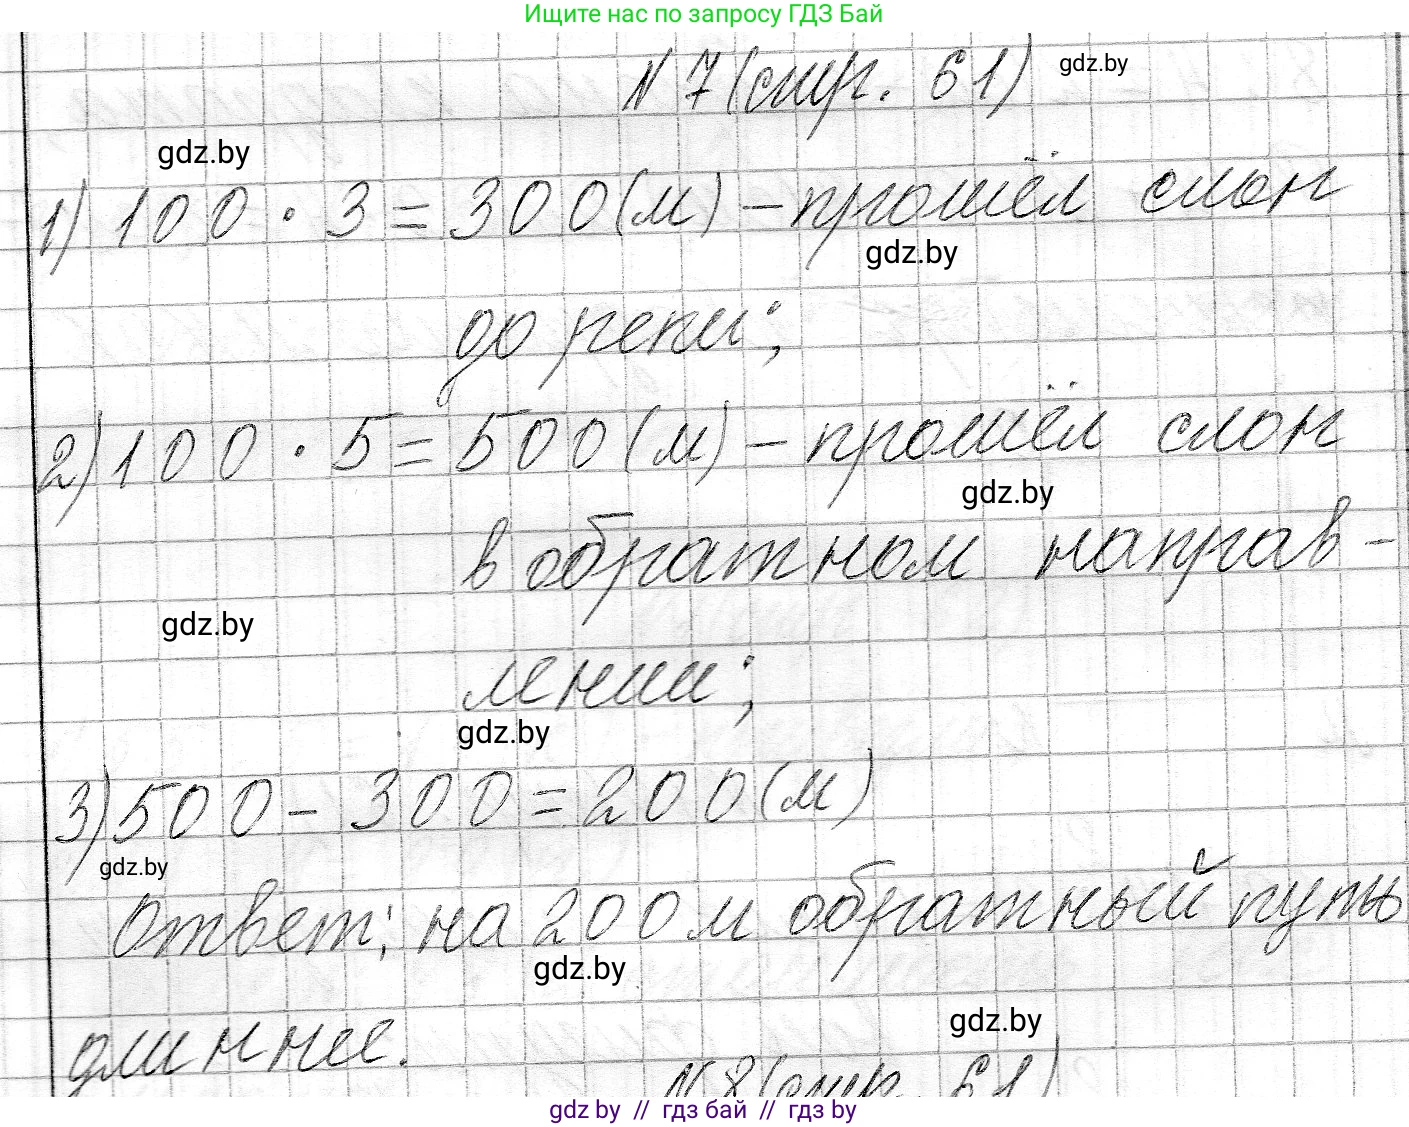 Ищите нас по запросу ГДЗ Бай
N 7 (стр. 61) gdz.by
gdz.by
1) 100 · 3 = 300 (м) – прошёл слон
gdz.by
до реки;
2) 100 · 5 = 500 (м) – прошёл слон
gdz.by
в обратном направ-
gdz.by
лении;
gdz.by
3) 500 – 300 = 200 (м)
gdz.by
Ответ: на 200 м обратный путь
gdz.by
длиннее.
gdz.by
N 8 (стр. 61)
gdz by // гдз бай // гдз by